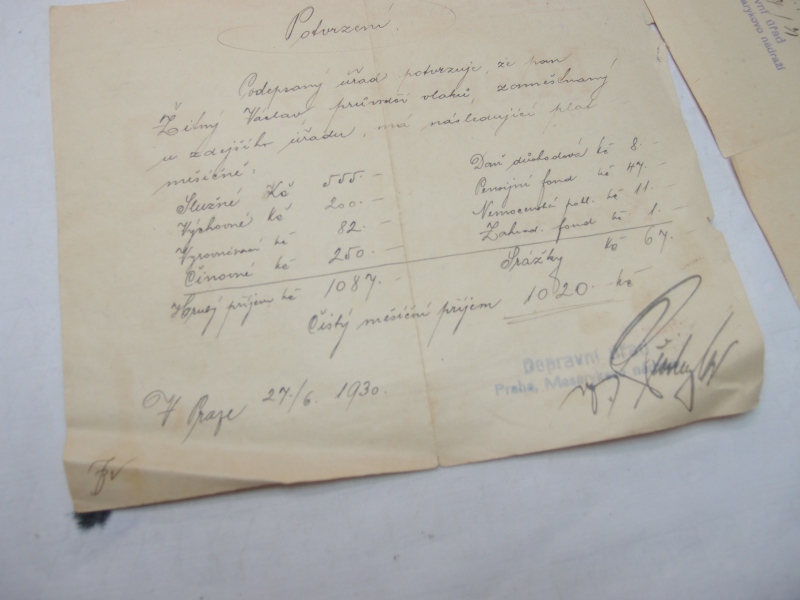 Potvrzení.
Podepsaný úřad potvrzuje, že pan
Žitný Václav, průvodčí vlaků, zaměstnaný
u zdejšího úřadu, má následující plat
měsíčně:
Služné Kč 555.-
Výchovné kč 200.-
Vyrovnávací kč 82.-
Činovné kč 250.-
Hrubý příjem kč 1087.-
Daň důchodová kč 8.-
Pensijní fond kč 47.-
Nemocenská poj. kč 11.-
Zahrad. fond kč 1.-
Srážky kč 67.-
Čistý měsíční příjem 1020.- kč
Dopravní úřad
Praha, Masarykovo
V Praze 27./6. 1930.
vní úřad
arykovo nádraží